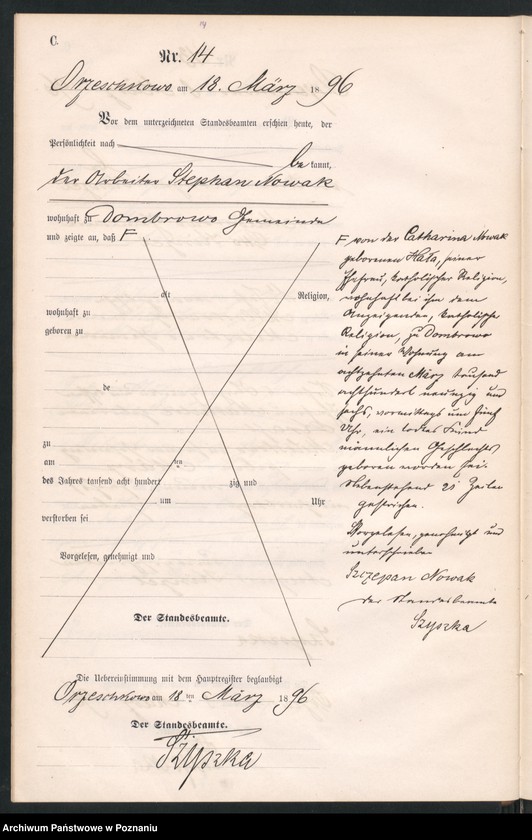 14
C.
Nr. 14
Orzeschkowo am 18. März 18 96
Vor dem unterzeichneten Standesbeamten erschien heute, der
Persönlichkeit nach
be kannt,
der Arbeiter Stephan Nowak
wohnhaft zu Dombrowo Gemeinde
und zeigte an, daß F
alt Religion,
wohnhaft zu
geboren zu
de
zu
am ten
des Jahres tausend acht hundert zig und
um Uhr
verstorben sei
Vorgelesen, genehmigt und
Der Standesbeamte.
F von der Catharina Nowak
geborenen Hała, seiner
Ehefrau, katholischer Religion,
wohnhaft bei ihm dem
Anzeigenden, katholische
Religion, zu Dombrowo
in seiner Wohnung am
achtzehnten März tausend
achthundert neunzig und
sechs, vormittags um fünf
Uhr, ein todtes Kind
männlichen Geschlechts
geboren worden sei.
Nebenstehend 21 Zeilen
gestrichen.
Vorgelesen, genehmigt und
unterschrieben
Szczepan Nowak
der Standesbeamte
Szyszka
Die Uebereinstimmung mit dem Hauptregister beglaubigt
Orzeschkowo am 18 ten März 18 96
Der Standesbeamte.
Szyszka
Archiwum Państwowe w Poznaniu